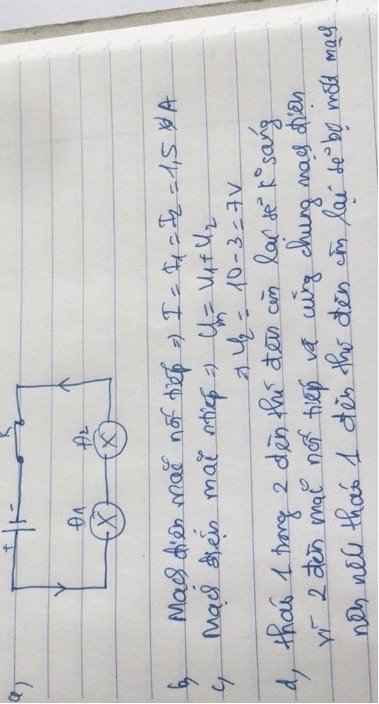 a,
+ -
K
Đ1 Đ2
b, Mạch điện mắc nối tiếp => I = I1 = I2 = 1,5 A
c, Mạch điện mắc ntiếp => Um = U1 + U2
=> U2 = 10 - 3 = 7V
d, tháo 1 trong 2 đèn thì đèn còn lại sẽ k° sáng
vì 2 đèn mắc nối tiếp và cùng chung mạch điện
nên nếu tháo 1 đèn thì đèn còn lại sẽ bị mất mạch